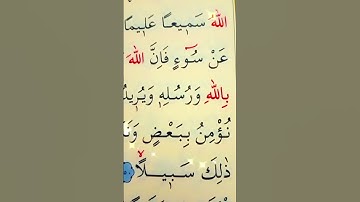 اللهُ سَمٖيعًا عَلٖيمًا
عَنْ سُوٓءٍ فَاِنَّ اللهَ
بِاللهِ وَرُسُلِهٖ وَيُرٖيدُ
نُؤْمِنُ بِبَعْضٍ
ذٰلِكَ سَبٖيلًا